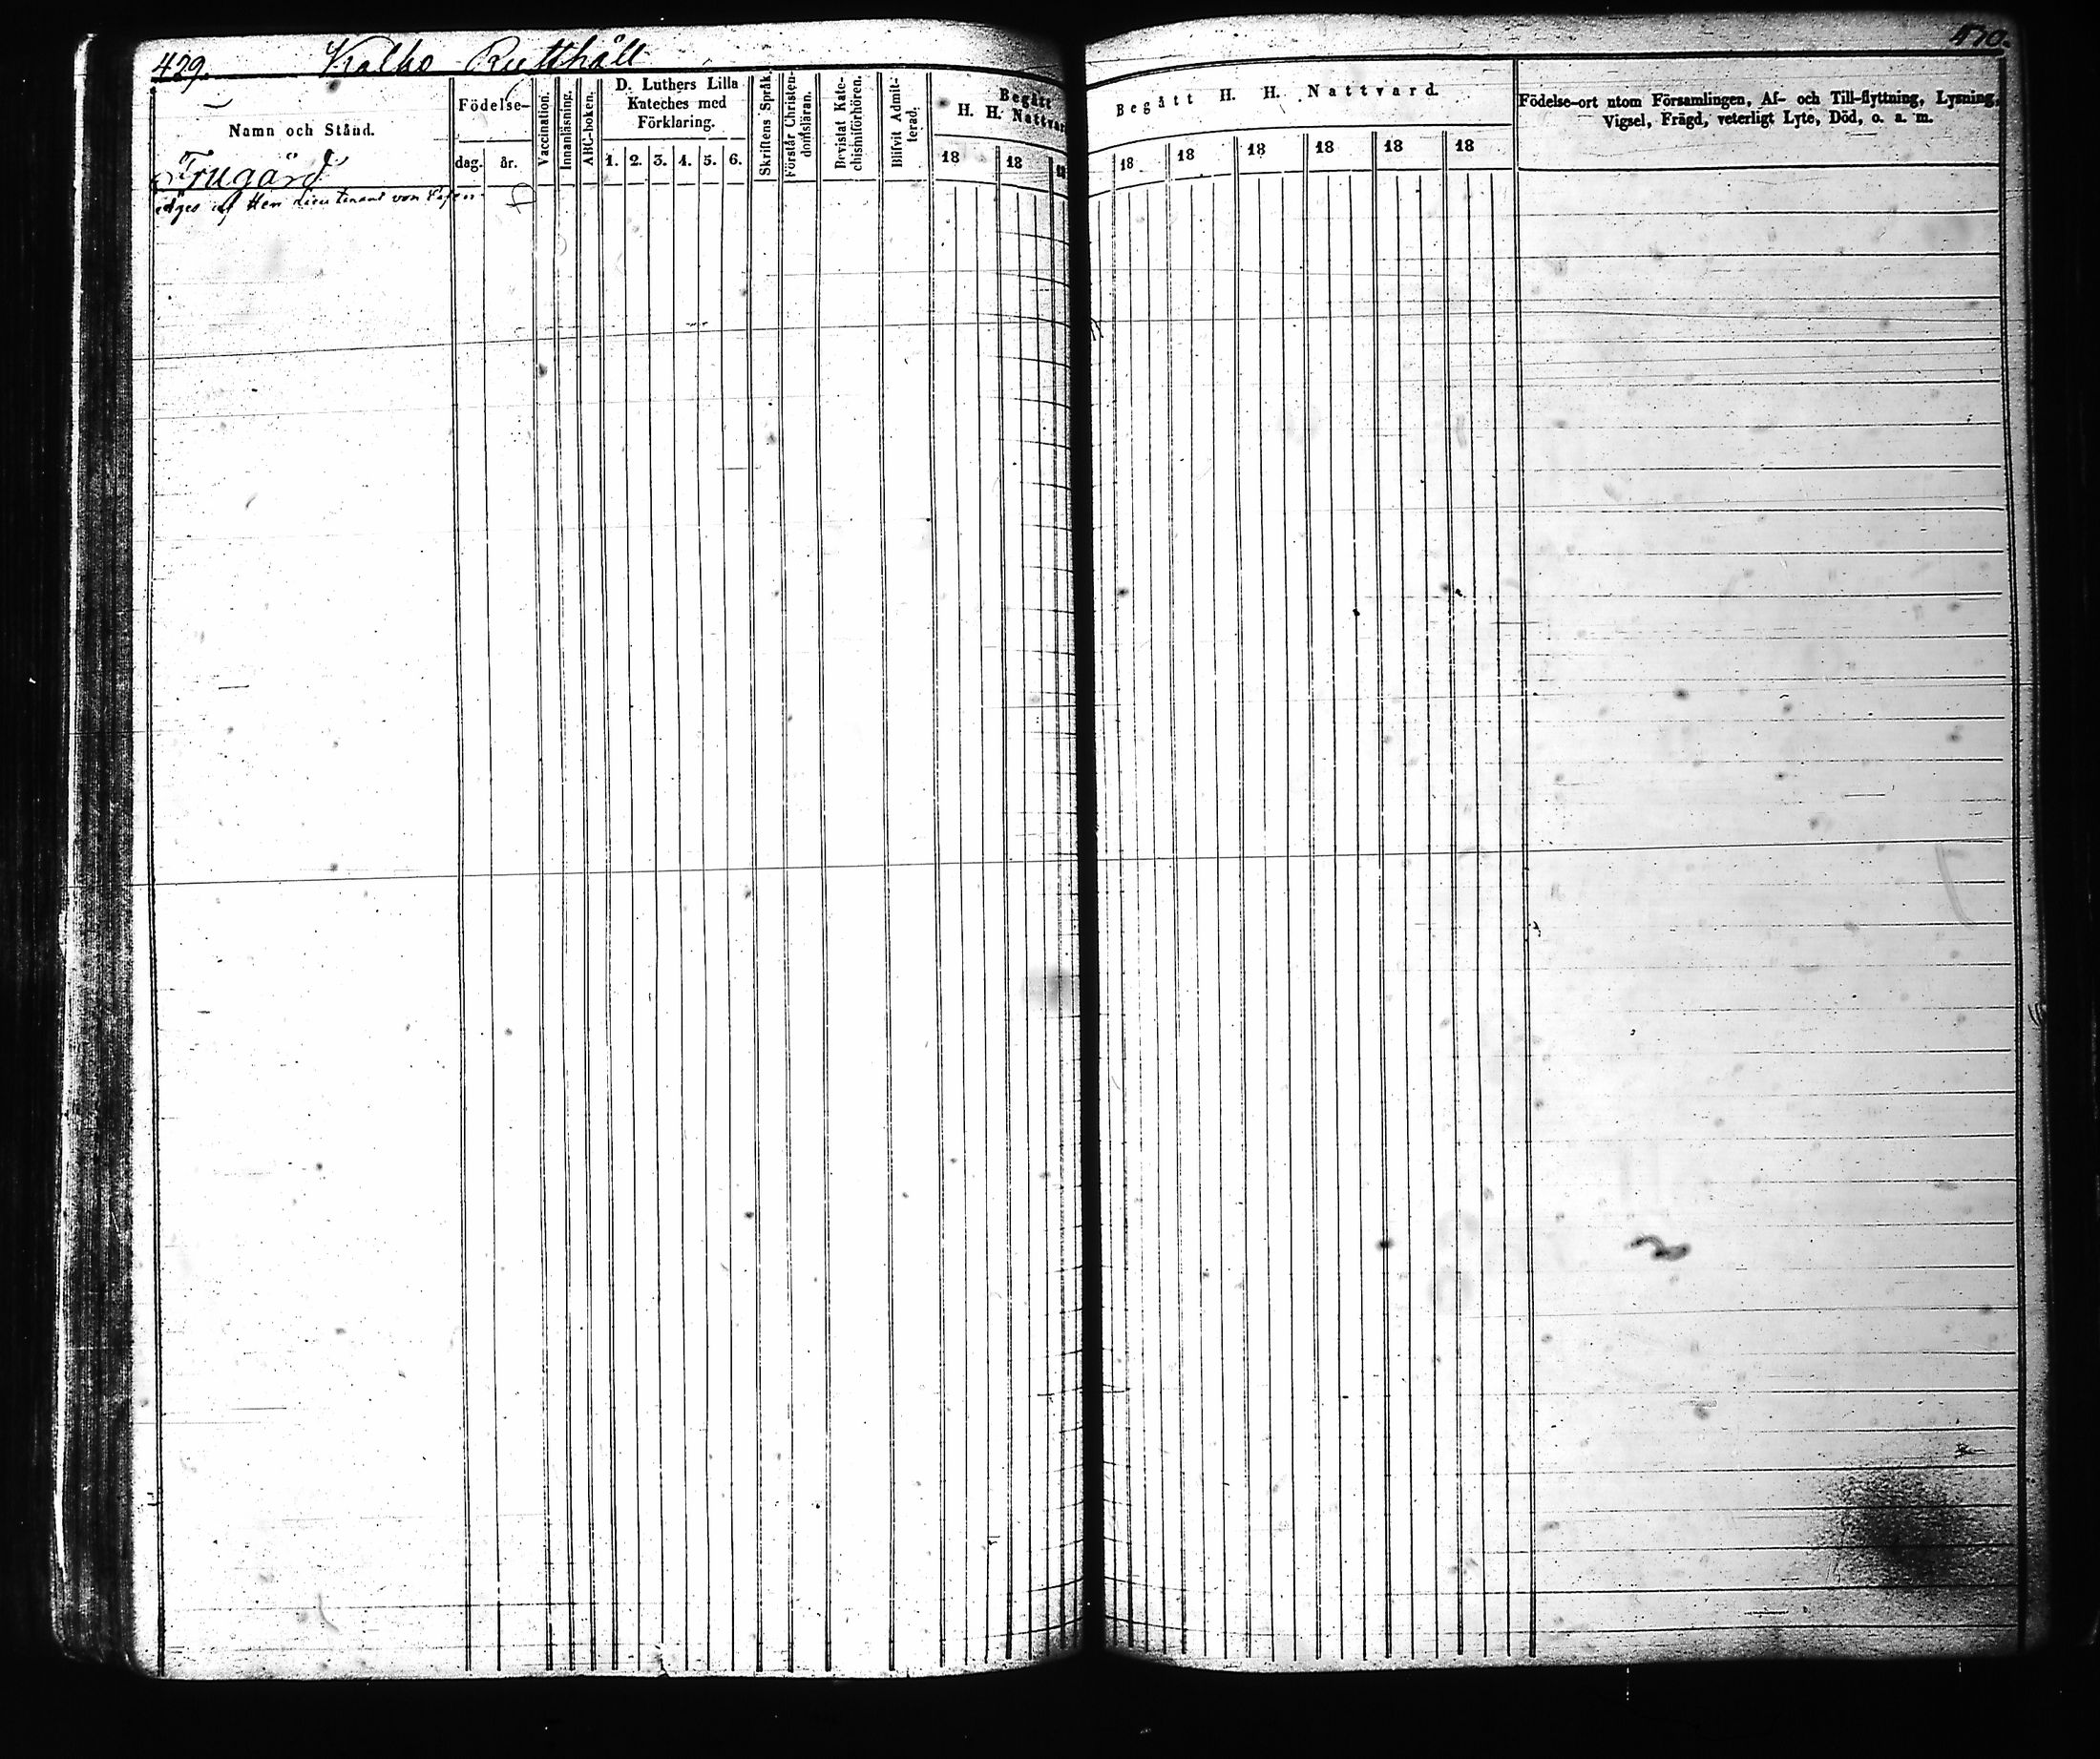 429.
Kalho Rusthåll
Namn och Stånd.
Födelse-
dag. år.
Vaccination.
Innanläsning.
ABC-boken.
D. Luthers Lilla
Kateches med
Förklaring.
1. 2. 3. 4. 5. 6.
Skriftens Språk.
Förstår Christen-
domsläran.
Bevistat Kate-
chismiförhören.
Blifvit Admit-
terad.
Begått
H. H. Nattvar
18 18
Frugård
äges af Herr Lieutenant von
470.
Begått H. H. Nattvard.
18 18 18 18 18 18
Födelse-ort utom Församlingen, Af- och Till-flyttning, Lysning,
Vigsel, Frägd, veterligt Lyte, Död, o. a. m.